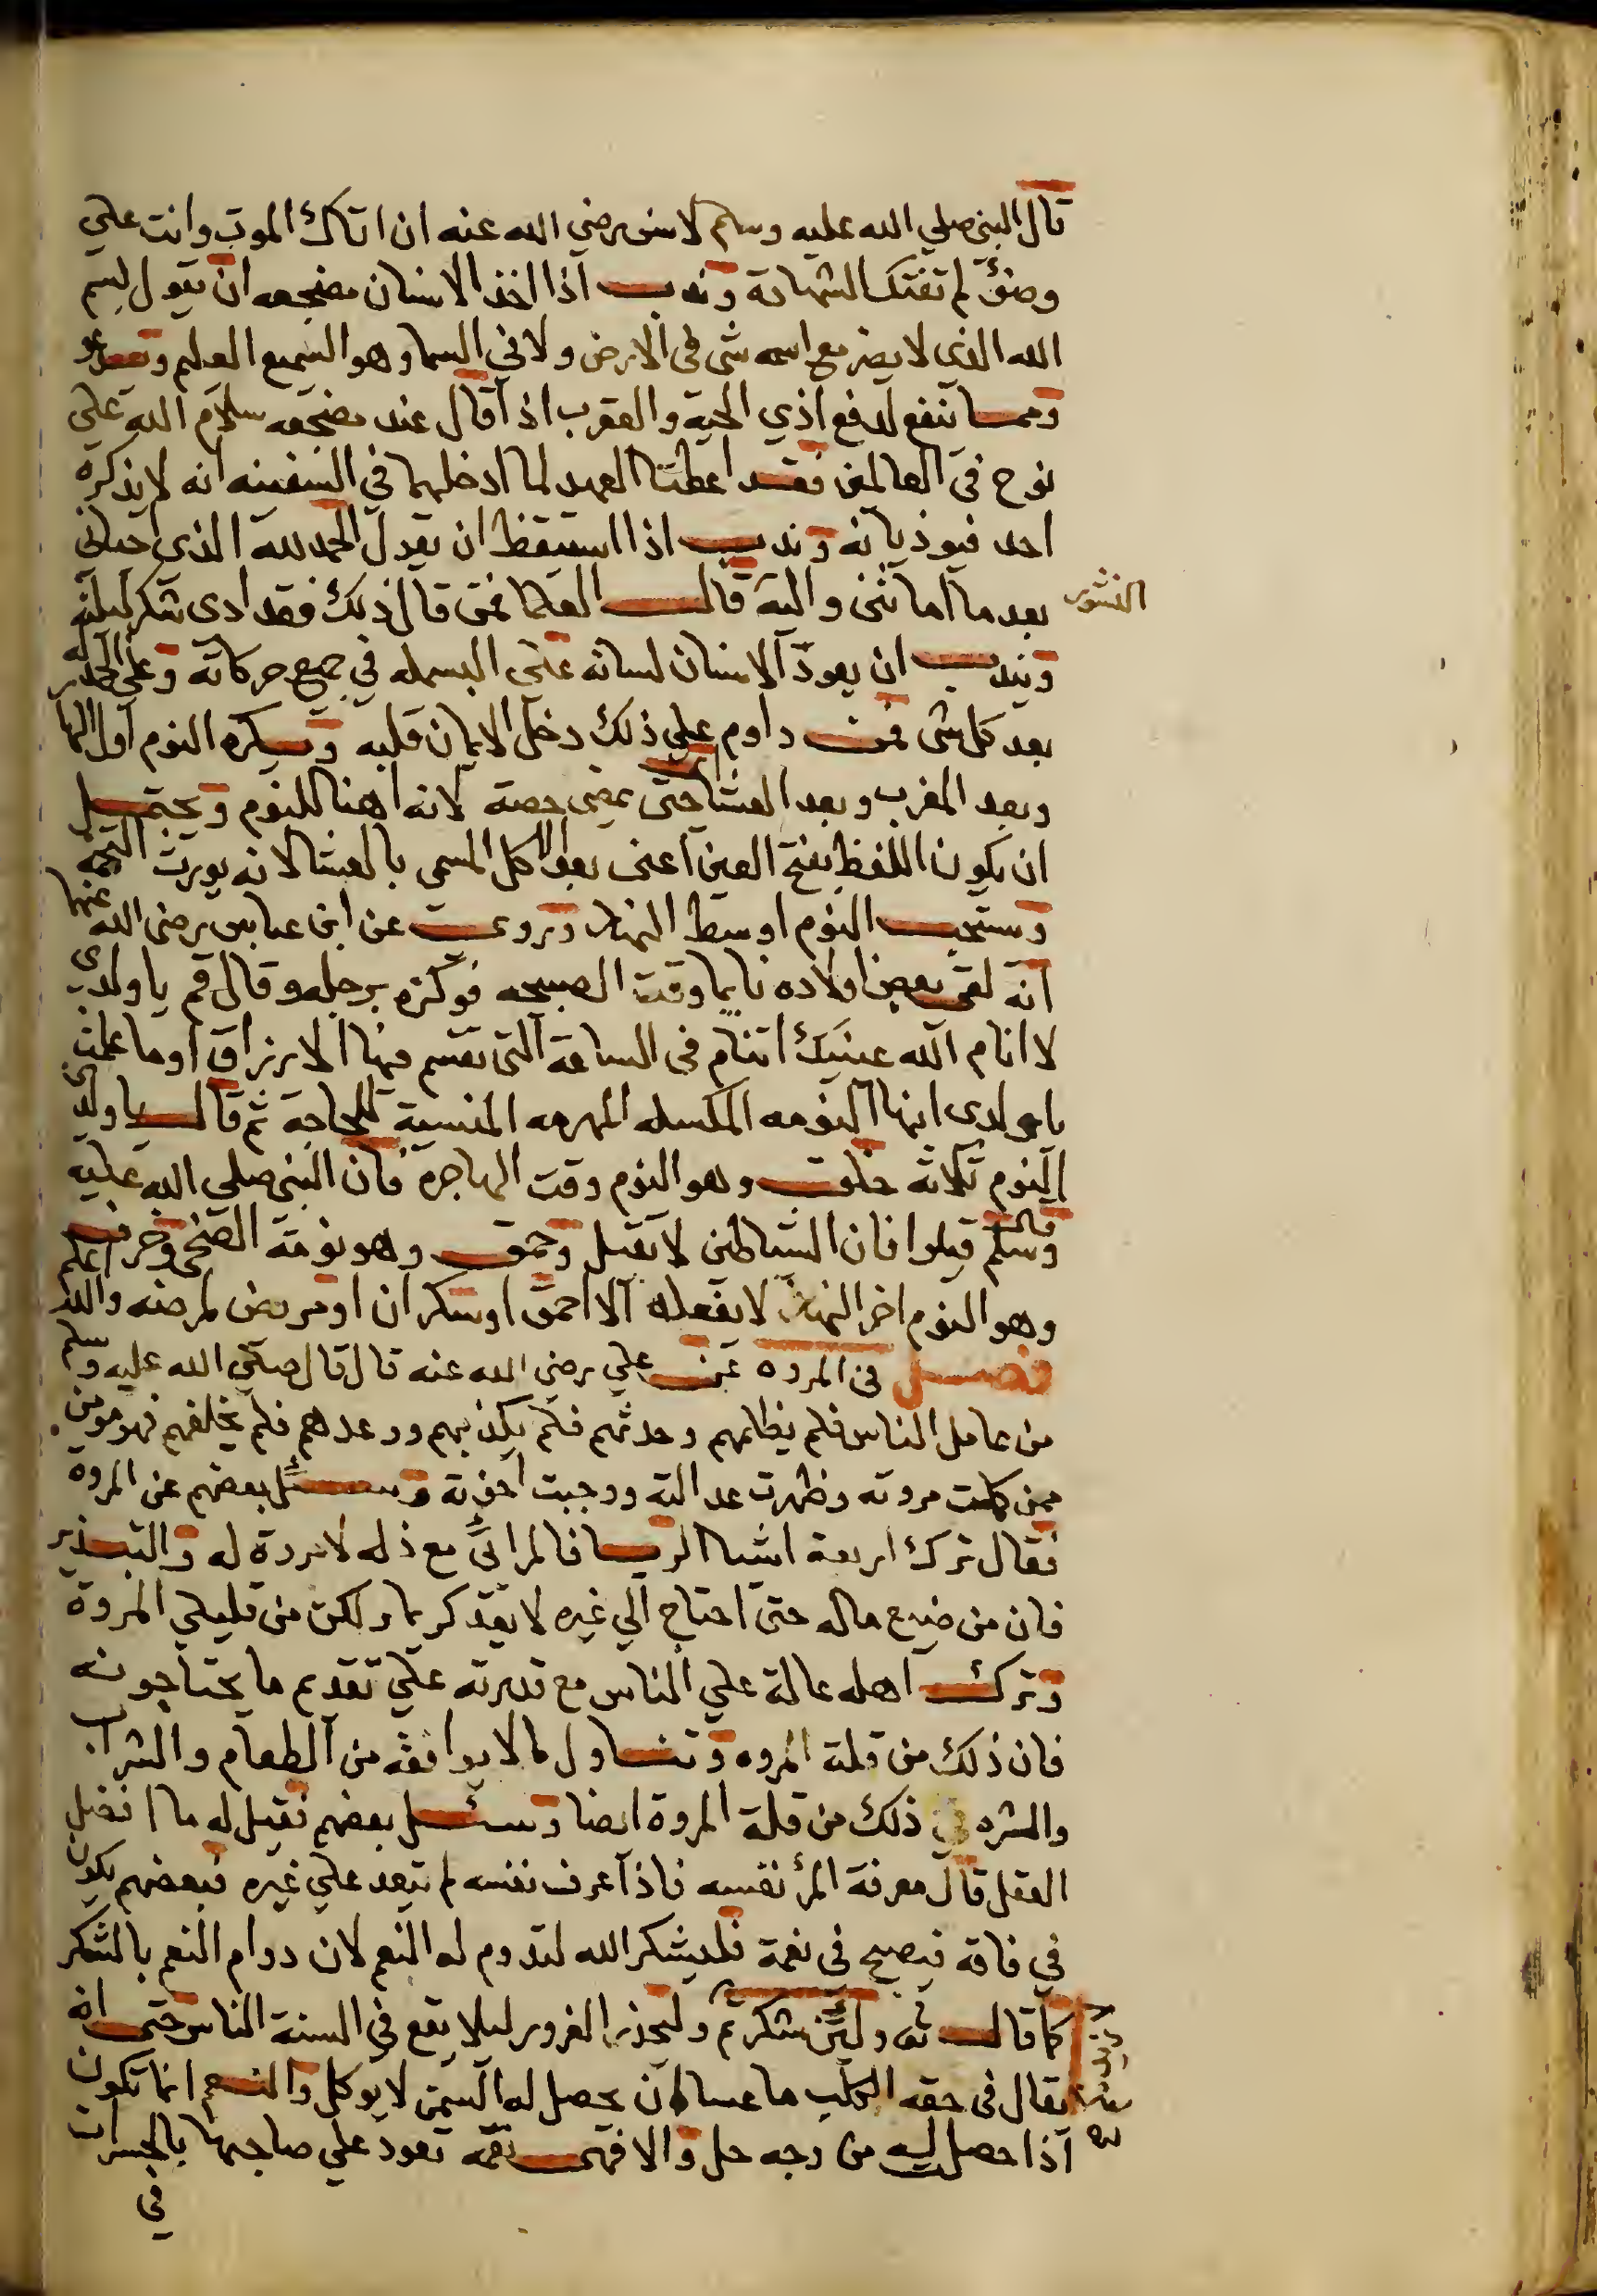 قال النبي صلي الله عليه وسلم لانس رضي الله عنه ان اتاك الموت وانت علي
وضؤ لم تفتك الشهادة وندب اذا اخذ الانسان مضجعه ان يقول بسم
الله الذي لا يضر مع اسمه شي في الارض ولا في السما وهو السميع العليم
ومما ينفع لدفع اذي الحية والعقرب اذا قال عند مضجعه سلام الله علي
نوح في العالمين فقد اعطتا العهد لما ادخلهما في السفينه انه لا يذكره
احد فيوذيانه وندب اذا استيقظ ان يقول الحمد لله الذي احياني
بعد ما اماتني واليه النشور قالت العلما فمن قال ذلك فقد ادى شكر ليلته
ويندب ان يعود الانسان لسانه علي البسمله في جميع حركاته وعلي الحمد لله
بعد كل شي فمن داوم علي ذلك دخل الايمان قلبه ويكره النوم اول النهار
وبعد المغرب وبعد العشا حتى يمضي حصة لانه اهنا للنوم ويحتمل
ان يكون اللفظ بفتح العين اعني بعد الاكل المسمي بالعشا لانه يورث التخمه
ويستحب النوم اوسط النهار وروي عن ابن عباس رضي الله عنهما
انه لقي بعض اولاده نايما وقت الصبيحه فوكزه برجله وقال قم يا ولدي
لا انام الله عينيك اتنام في الساعة التي تقسم فيها الارزاق اوما علمت
يا ولدي انها النومه المكسله المهرمه المنسية للحاجة ثم قال يا ولدي
النوم ثلاثه خلق وهو النوم وقت الهاجره فان النبي صلي الله عليه
وسلم قال قيلوا فان الشياطين لا تقيل وحمق وهو نومة الضحي وخرق
وهو النوم اخر النهار لا يفعله الا احمق او سكران او مريض لمرضه والله اعلم
فصل في المروه عن علي رضي الله عنه قال قال صلي الله عليه وسلم
من عامل الناس فلم يظلمهم وحدثهم فلم يكذبهم ووعدهم فلم يخلفهم فهو مومن
ممن كملت مروته وظهرت عدالته ووجبت اخوته وسئل بعضهم عن المروة
فقال ترك اربعة اشيا الريا فالمرائي مع ذله لا مروة له والتبذير
فان من ضيع ماله حتى احتاج الي غيره لا يعد كريما ولكن من قليلي المروة
وترك اهله عالة علي الناس مع قدرته علي تقديم ما يحتاجونه
فان ذلك من قلة المروه وتناول ما لا يوافقه من الطعام والشراب
والشره في ذلك من قلة المروة ايضا وسئل بعضهم فقيل له ما افضل
العقل قال معرفة المرء نفسه فاذا عرف نفسه لم يتعد علي غيره فبعضهم يكون
في فاقة فيصبح في نعمة فليشكر الله لتدوم له النعم لان دوام النعم بالشكر
كما قال تعالى ولئن شكرتم لازيدنكم وليحذر الغرور ليلا يقع في السنة الناس حتى انه
يقال في حقه الكلب ما عساه ان يحصل له السمن لا يوكل والنعم انما تكون
اذا حصل اليه من وجه حل والا فهي نقمه تعود علي صاحبها بالخسران
في